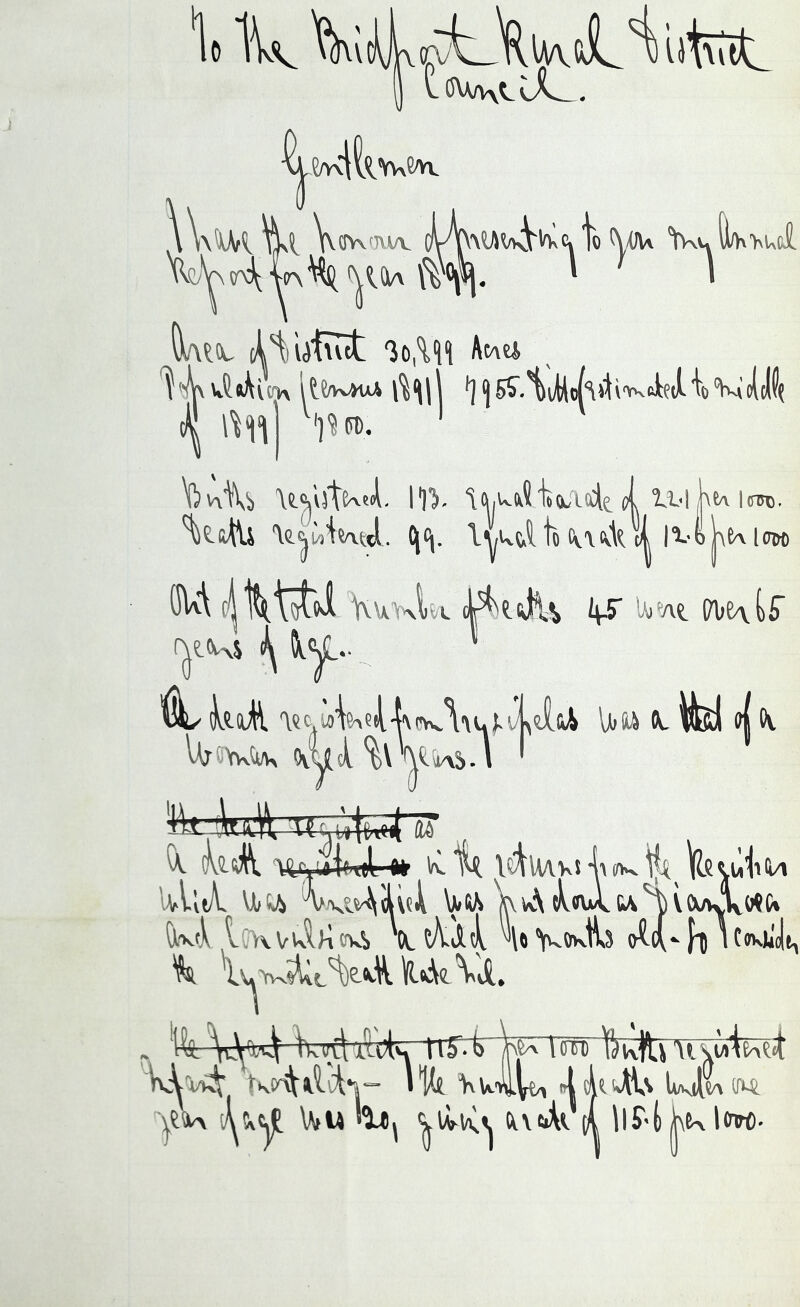 To the Bridport Rural District
Council.
Gentlemen
I have the honour of presenting to you my Annual
Report for the year 1899.
Area of District 30,899 Acres
Population (Census 1891) 7955. Ditto (Estimated to middle
of 1899) 7800.
Births registered. 173. Equal to a rate of 22.1 per 1000.
Deaths registered. 99. Equal to a rate of 12.6 per 1000
Out of the total number of Deaths 45 were over 65
years of age.
death registered from Erysipelas was a that of a
Woman aged 81 years.
The death registered as
A death registered as in the returns from the Registrar
which was uncertified was put down as Diarrhoea
and Convulsions a child 10 months old - so I consider
the Zymotic Death Rate Nil.
The Infant Mortality 115.6 per 1000 Births registered
Infant Mortality - The number of deaths under one
year of age was 20, giving a rate of 115.6 per 1000.